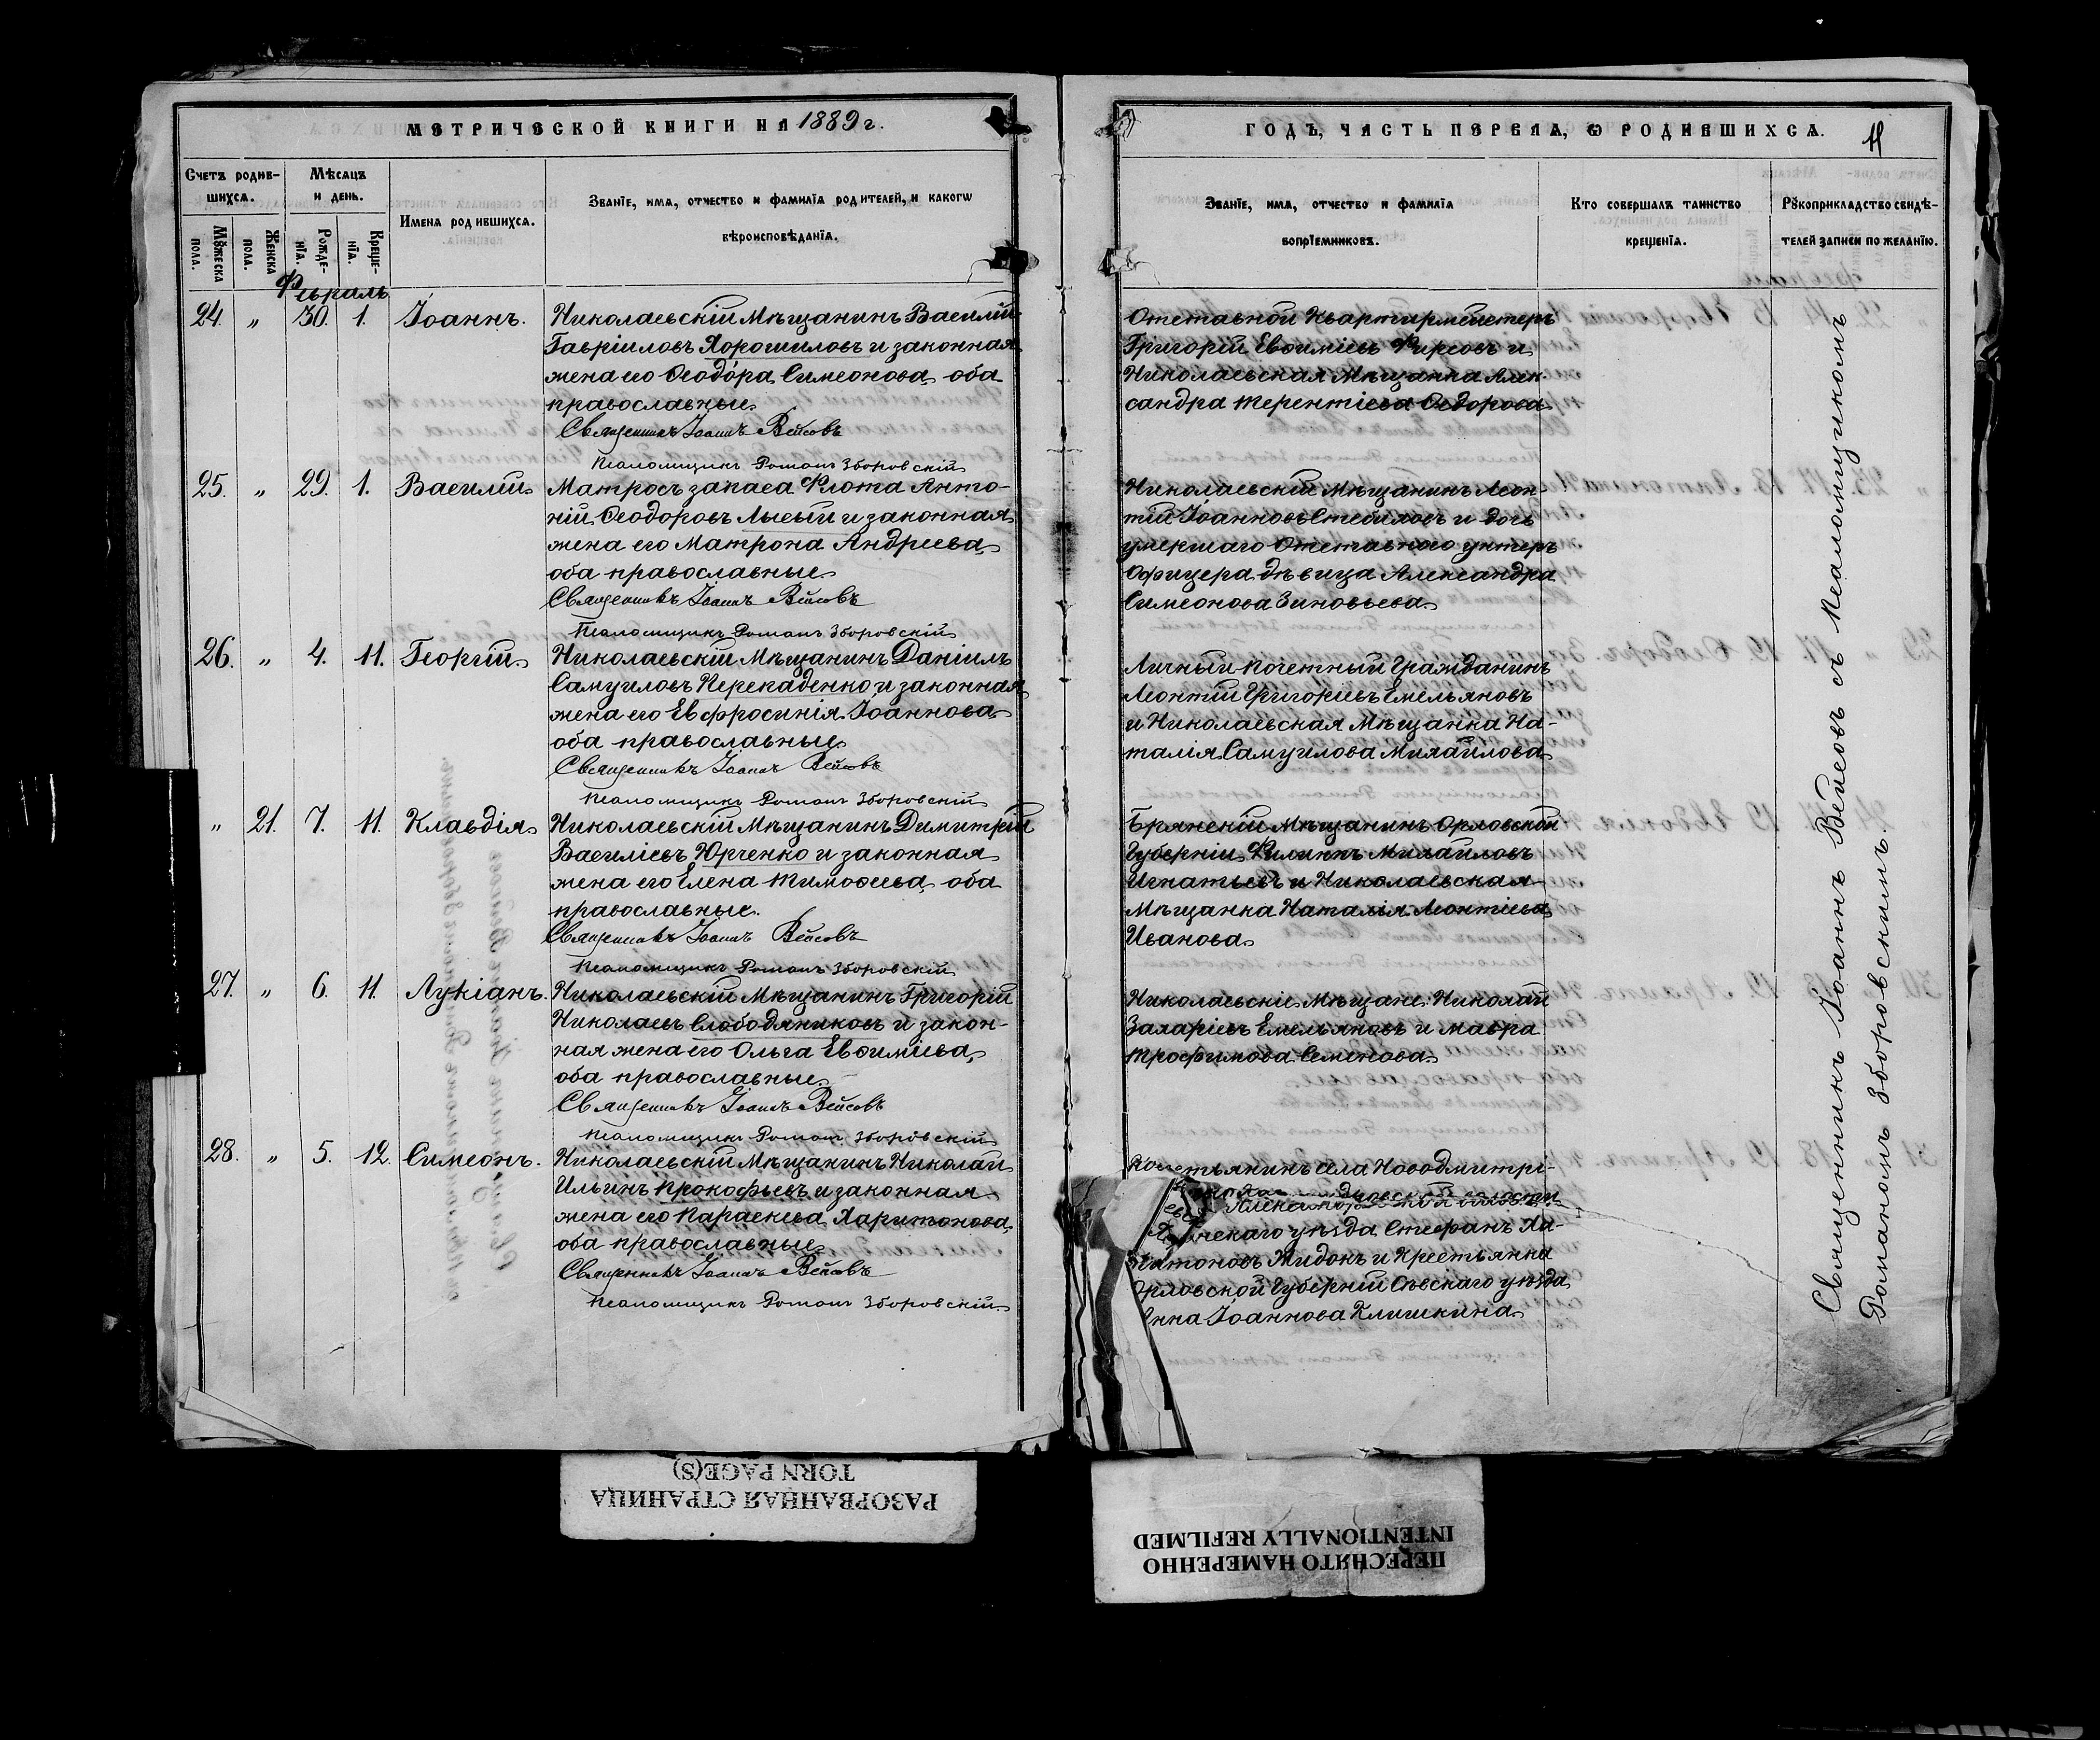 МЕТРИЧЕСКОЙ КНИГИ НА 1889 г.
Счетъ родив-
шихся.
Мѣсяцъ
и день.
Имена родившихся.
Званїе, имя, отчество и фамилїа родителей, и какогѡ
вѣроисповѣданїа.
Мꙋжеска
пола.
Женска
пола.
Рожде-
нїа.
Креще-
нїа.
Февраль
24. „ 30. 1. Іоаннъ. Николаевскій Мѣщанинъ Василій
Гавріиловъ Хорошиловъ и законная
жена его Ѳеодо́ра Симеонова, оба
православные
Священникъ Іоаннъ Вейсовъ
Псаломщикъ Романъ Зборовскій
25. „ 29. 1. Василій Матросъ запаса Флота Анто-
ній Ѳеодоровъ Лысый и законная
жена его Матрона Андреева
оба православные
Священникъ Іоаннъ Вейсовъ
Псаломщикъ Романъ Зборовскій
26. „ 4. 11. Георгій Николаевскій Мѣщанинъ Даніилъ
Самуиловъ Перекаденко, и законная
жена его Евфросинія Іоаннова
оба православные
Священникъ Іоаннъ Вейсовъ
Псаломщикъ Романъ Зборовскій
„ 21. 7. 11. Клавдія Николаевскій Мѣщанинъ Димитрій
Василіевъ Юрченко и законная
жена его Елена Тимоѳеева, оба
православные.
Священникъ Іоаннъ Вейсовъ
Псаломщикъ Романъ Зборовскій
27. „ 6. 11. Лукіанъ. Николаевскій Мѣщанинъ Григорій
Николаевъ Слободяниковъ и закон-
ная жена его Ольга Евѳиміева,
оба православные
Священникъ Іоаннъ Вейсовъ
Псаломщикъ Романъ Зборовскій
28. „ 5. 12. Симеонъ. Николаевскій Мѣщанинъ Николай
Ильинъ Прокофьевъ и законная
жена его Параскева Харитонова,
оба православные
Священникъ Іоаннъ Вейсовъ
Псаломщикъ Романъ Зборовскій
ГОДЪ, ЧАСТЬ ПЕРВАЯ, Ѡ РОДИВШИХСЯ.
11
Званїе, имя, отчество и фамилїа
вопрїемниковъ.
Кто совершалъ таинство
крещенїа.
Рꙋкоприкладство свидѣ-
телей записи по желанїю.
Отставной Квартирмейстеръ
Григорій Евѳиміевъ Фирсовъ и
Николаевская Мѣщанка Алек-
сандра Терентіева Ѳедорова
Николаевскій Мѣщанинъ Леон-
тій Іоанновъ Стебиловъ и дочь
умершаго Отставного унтеръ
Офицера дѣвица Александра
Симеонова Зиновьева
Личный Почетный Гражданинъ
Леонтій Григоріевъ Емельяновъ
и Николаевская Мѣщанка На-
талія Самуилова Михайлова
Брянскій Мѣщанинъ Орловской
Губерніи Филиппъ Михайловъ
Игнатьевъ и Николаевская
Мѣщанка Наталія Леонтіева
Иванова
Николаевскіе Мѣщане: Николай
Захаріевъ Емельяновъ и Мавра
Трофимова Семенова
Крестьянинъ села Новодмитрі-
Александровской волости
уѣзда Стефанъ Ха-
ритоновъ Жидокъ и Крестьянка
Орловской Губерніи Сѣвскаго уѣзда
Анна Іоаннова Клишкина
Священникъ Іоаннъ Вейсовъ съ Псаломщикомъ
Романомъ Зборовскимъ.
РАЗОРВАННАЯ СТРАНИЦА
TORN PAGE(S)
ПЕРЕСНЯТО НАМЕРЕННО
INTENTIONALLY REFILMED